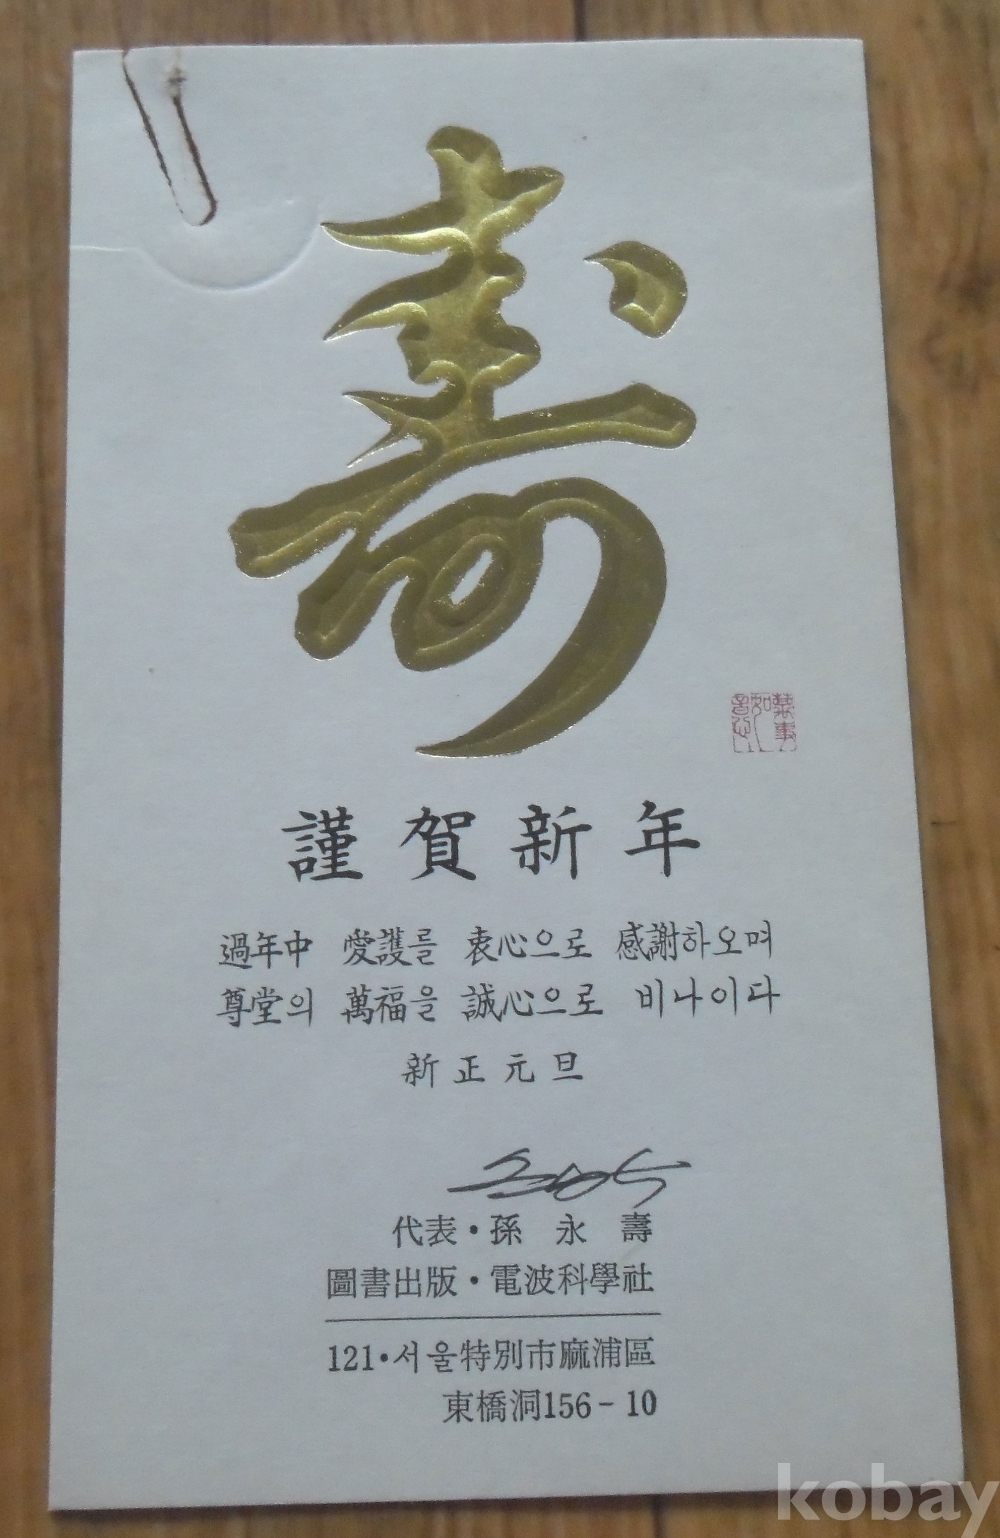 壽
萬事
如
意
謹賀新年
過年中 愛護를 衷心으로 感謝하오며
尊堂의 萬福을 誠心으로 비나이다
新正元旦
代表・孫 永 壽
圖書出版・電波科學社
121・서울特別市麻浦區
東橋洞156－10
kobay